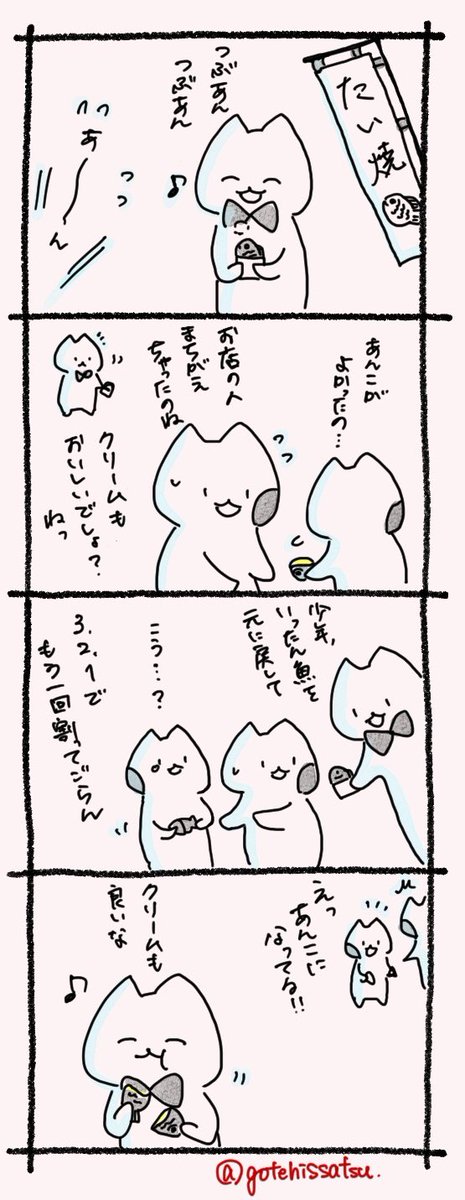 たい焼
つぶあん
つぶあん
♪
あーん
あんこが
よかったの…
お店の人
まちがえ
ちゃったのね
クリームも
おいしいでしょ?
ねっ
少年、
いったん魚を
元に戻して
こう…?
3.2.1で
もう一回割ってごらん
えっ
あんこに
なってる!!
クリームも
良いな
♪
@gotehissatsu.